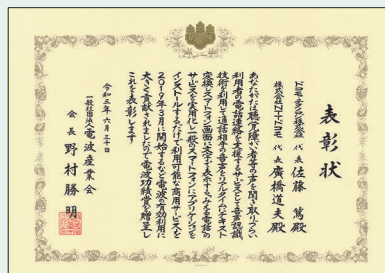 表彰状
ドコモ・テクノロジ株式会社 代表 佐藤 篤殿
株式会社NTTドコモ 代表 廣橋道夫殿
あなたがたは聴覚障がい者等の声を聞き取りづらい
利用者の電話連絡を支援するサービスとして音声認識
技術を利用して通話相手の音声をリアルタイムにテキスト
変換しスマートフォン画面に文字で表示するみえる電話の
サービスを実用化し一般のスマートフォンにアプリケーションを
インストールするだけで利用可能な商用サービスを
2019年3月に開始するなど電波の有効利用に
大きく貢献されましたので電波功績賞を贈呈し
これを表彰します
令和三年六月三十日
一般社団法人電波産業会
会長 野村勝明